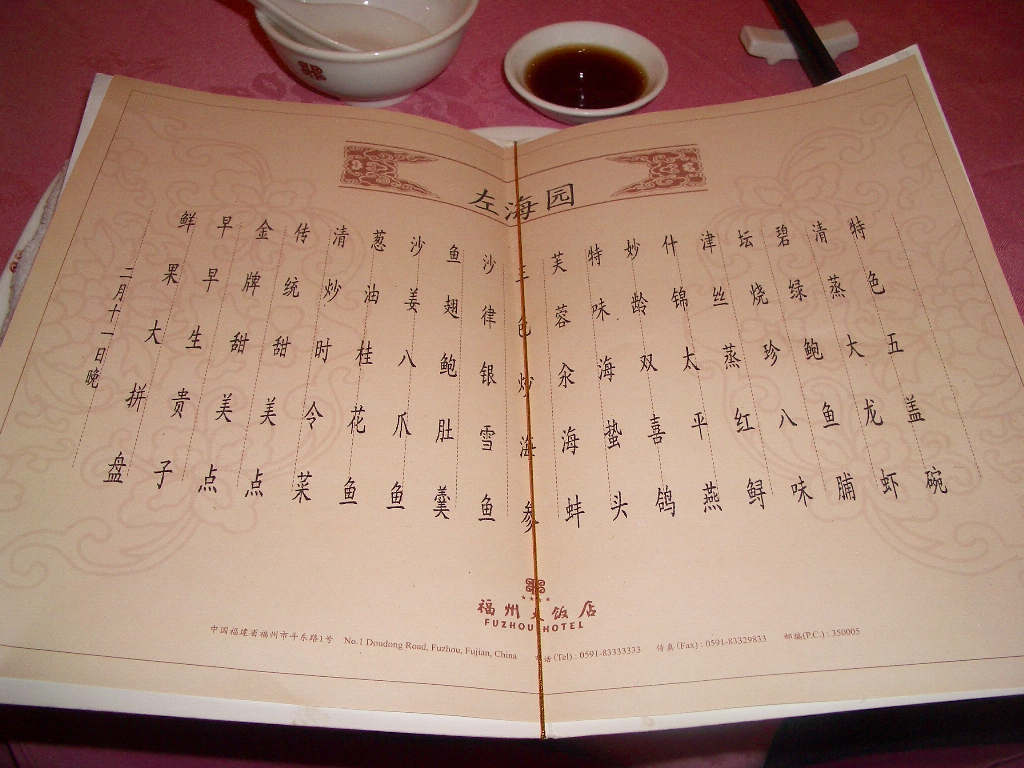 左海园
特色五盖碗
清蒸大龙虾
碧绿鲍鱼脯
坛烧珍八味
津丝蒸红鲟
什锦太平燕
妙龄双喜鸽
特味海蛰头
芙蓉汆海蚌
三色炒海参
沙律银雪鱼
鱼翅鲍肚羹
沙姜八爪鱼
葱油桂花鱼
清炒时令菜
传统甜美点
金牌甜美点
早早生贵子
鲜果大拼盘
二月十一日晚
福州大饭店
FUZHOU HOTEL
中国福建省福州市斗东路1号 No.1 Doudong Road, Fuzhou, Fujian, China 电话(Tel) : 0591-83333333 传真(Fax) : 0591-83329833 邮编(P.C.) : 350005